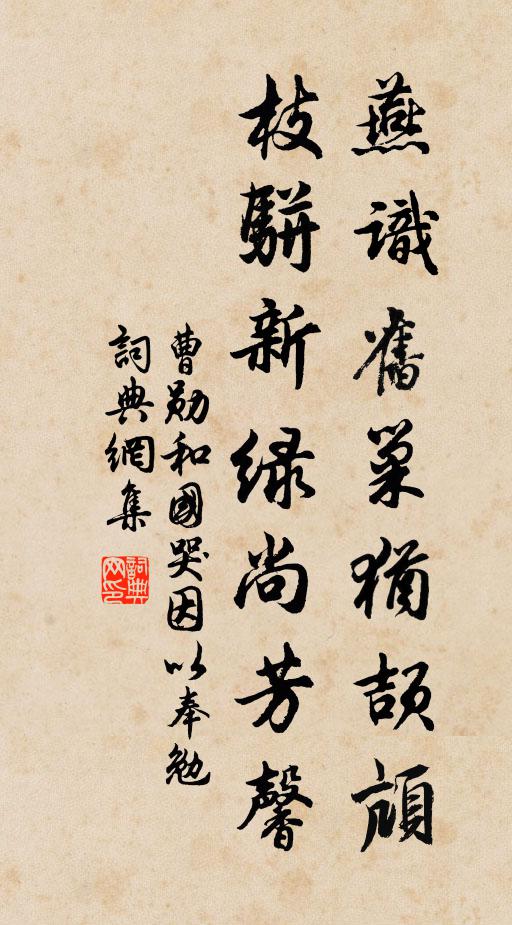 燕識舊巢猶頡頏
枝駢新綠尚芳馨
曹勛和國哭因以奉勉
詞典網集
詞典网印